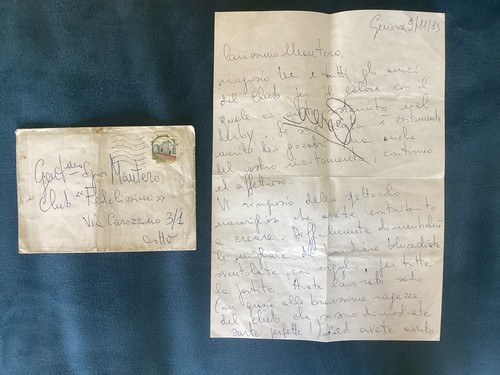 Gent.mo Sig.
Mantero
Club "Fedelissimi"
Via Carozzino 3/1
città
Genova 9/11/
Carissimo Mantero,
ringrazio te e tutti gli amici
del Club per il calore con il
quale ci nel
derby. è certamente
merito dei ma anche
del vostro incitamento, continuo
ed affettuoso.
Vi ringrazio dello spettacolo
magnifico che avete contribuito
a creare. Difficilmente si
le migliaia di bandiere blucerchiate
sventolate, con orgoglio, per tutta
la partita. Avete lavorato sodo
(con grazie alle bravissime ragazze
del club che si sono dimostrate
sarte perfette!) ed avete avuto